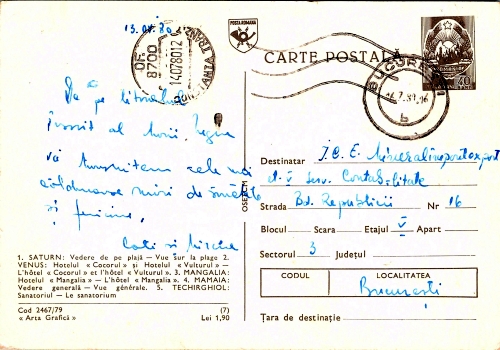 13.07.80
OF. 8700
14.07.80.12
CONSTANȚA TRANZIT
POȘTA ROMÂNĂ
CARTE POSTALĂ
40
BUCUREȘTI
16.7.80.16
b
De pe litoralul
însorit al Mării Negre
vă transmitem cele mai
călduroase urări de sănătate
și fericire,
și Mircea
Destinatar I.C.E. Mineralimportexport
et. V serv. Contabilitate
Strada Bd. Republicii Nr 16
Blocul Scara Etajul V Apart
Sectorul 3 Județul
CODUL
LOCALITATEA
București
Țara de destinație
1. SATURN: Vedere de pe plajă — Vue sur la plage 2.
VENUS: Hotelul « Cocorul » și Hotelul « Vulturul » —
L'hôtel « Cocorul » et l'hôtel « Vulturul ». 3. MANGALIA:
Hotelul « Mangalia » — L'hôtel « Mangalia ». 4. MAMAIA:
Vedere generală — Vue générale. 5. TECHIRGHIOL:
Sanatoriul — Le sanatorium
Cod 2467/79 (7)
« Arta Grafică » Lei 1,90